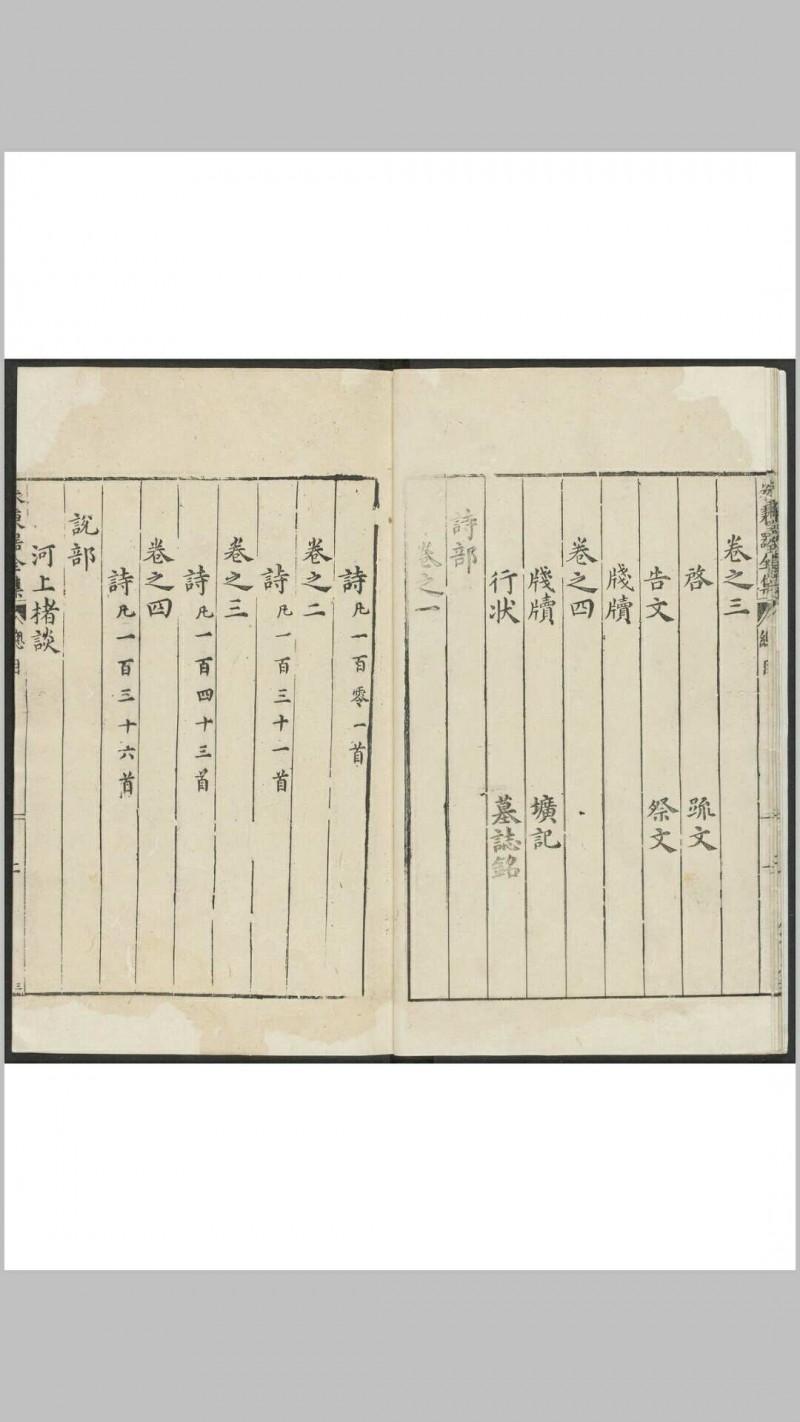 卷之三
啓 䟽文
告文 祭文
牋牘
卷之四
牋牘 壙記
行状 墓誌銘
詩部
卷之一
詩凡一百零一首
卷之二
詩凡一百三十一首
卷之三
詩凡一百四十三首
卷之四
詩凡一百三十六首
說部
河上楮談
總目
二
三